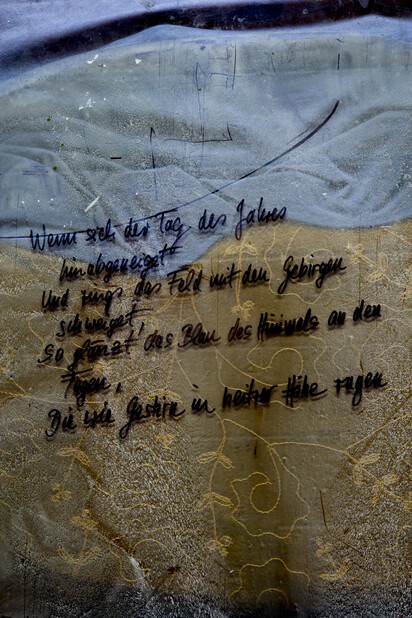 Wenn sich der Tag des Jahres
hinabgeneiget
Und rings das Feld mit den Gebirgen
schweiget,
So glänzt das Blau des Himmels an den
Tagen,
Die wie Gestirn in heitrer Höhe ragen